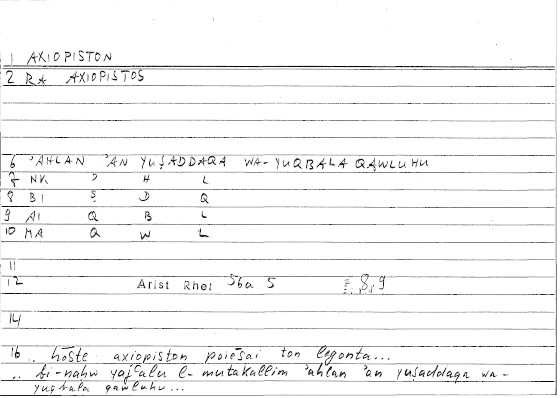 1 AXIOPISTON
2 RA AXIOPISTOS
6 'AHLAN 'AN YUṢADDAQA WA-YUQBALA QAWLUHU
7 NK ' H L
8 BI Ṣ D Q
9 AI Q B L
10 MA Q W L
11
12 Arist Rhet 56a 5 7, 8, 9
14
16 .. hōste axiopiston poiēsai ton legonta...
.. bi-nahw yajʿalu l-mutakallim 'ahlan 'an yuṣaddaqa wa-
yuqbala qawluhu...